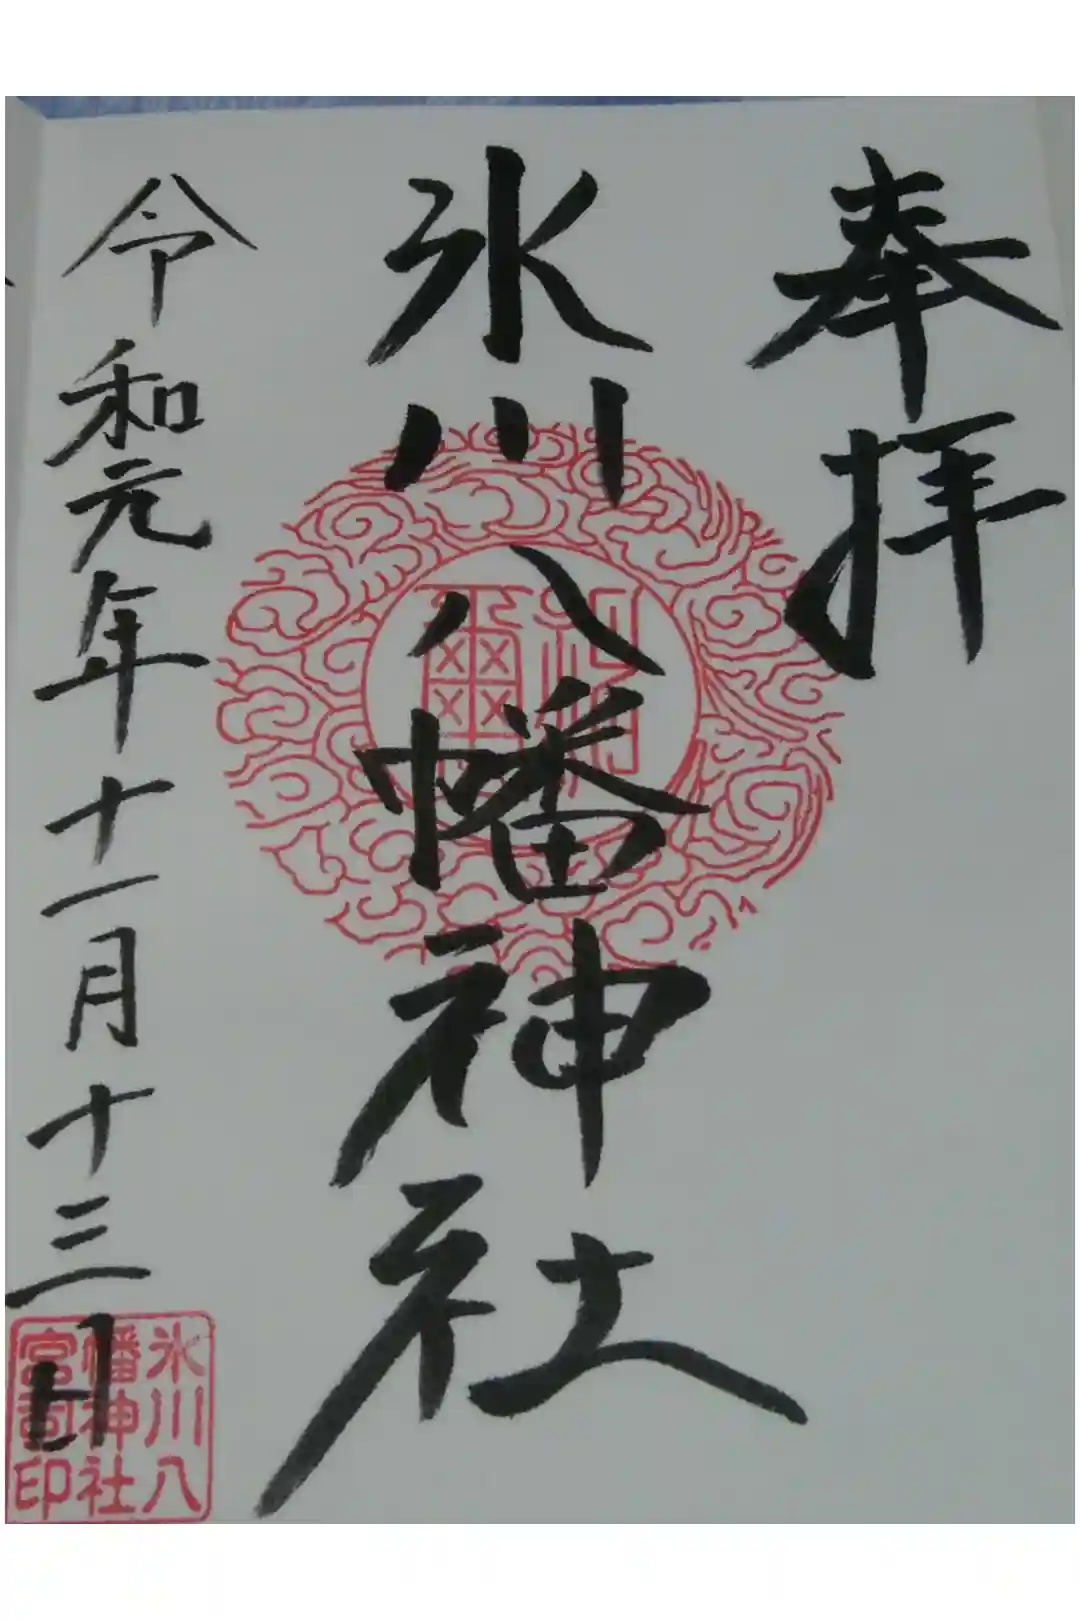 奉拝
氷川八幡神社
令和元年十一月十三日
氷川八
幡神社
宮司印